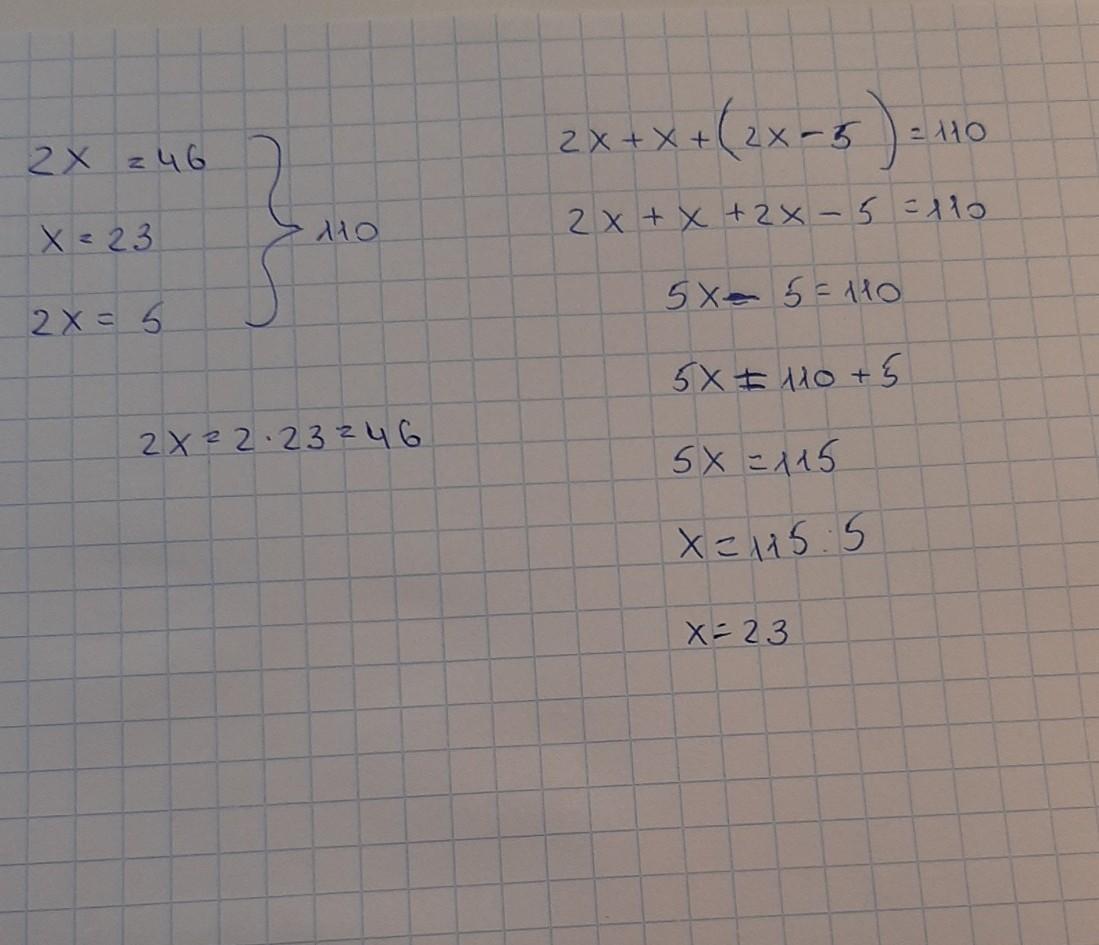 2x = 46
x = 23
2x = 5
110
2x = 2 · 23 = 46
2x + x + (2x - 5) = 110
2x + x + 2x - 5 = 110
5x - 5 = 110
5x = 110 + 5
5x = 115
x = 115 : 5
x = 23